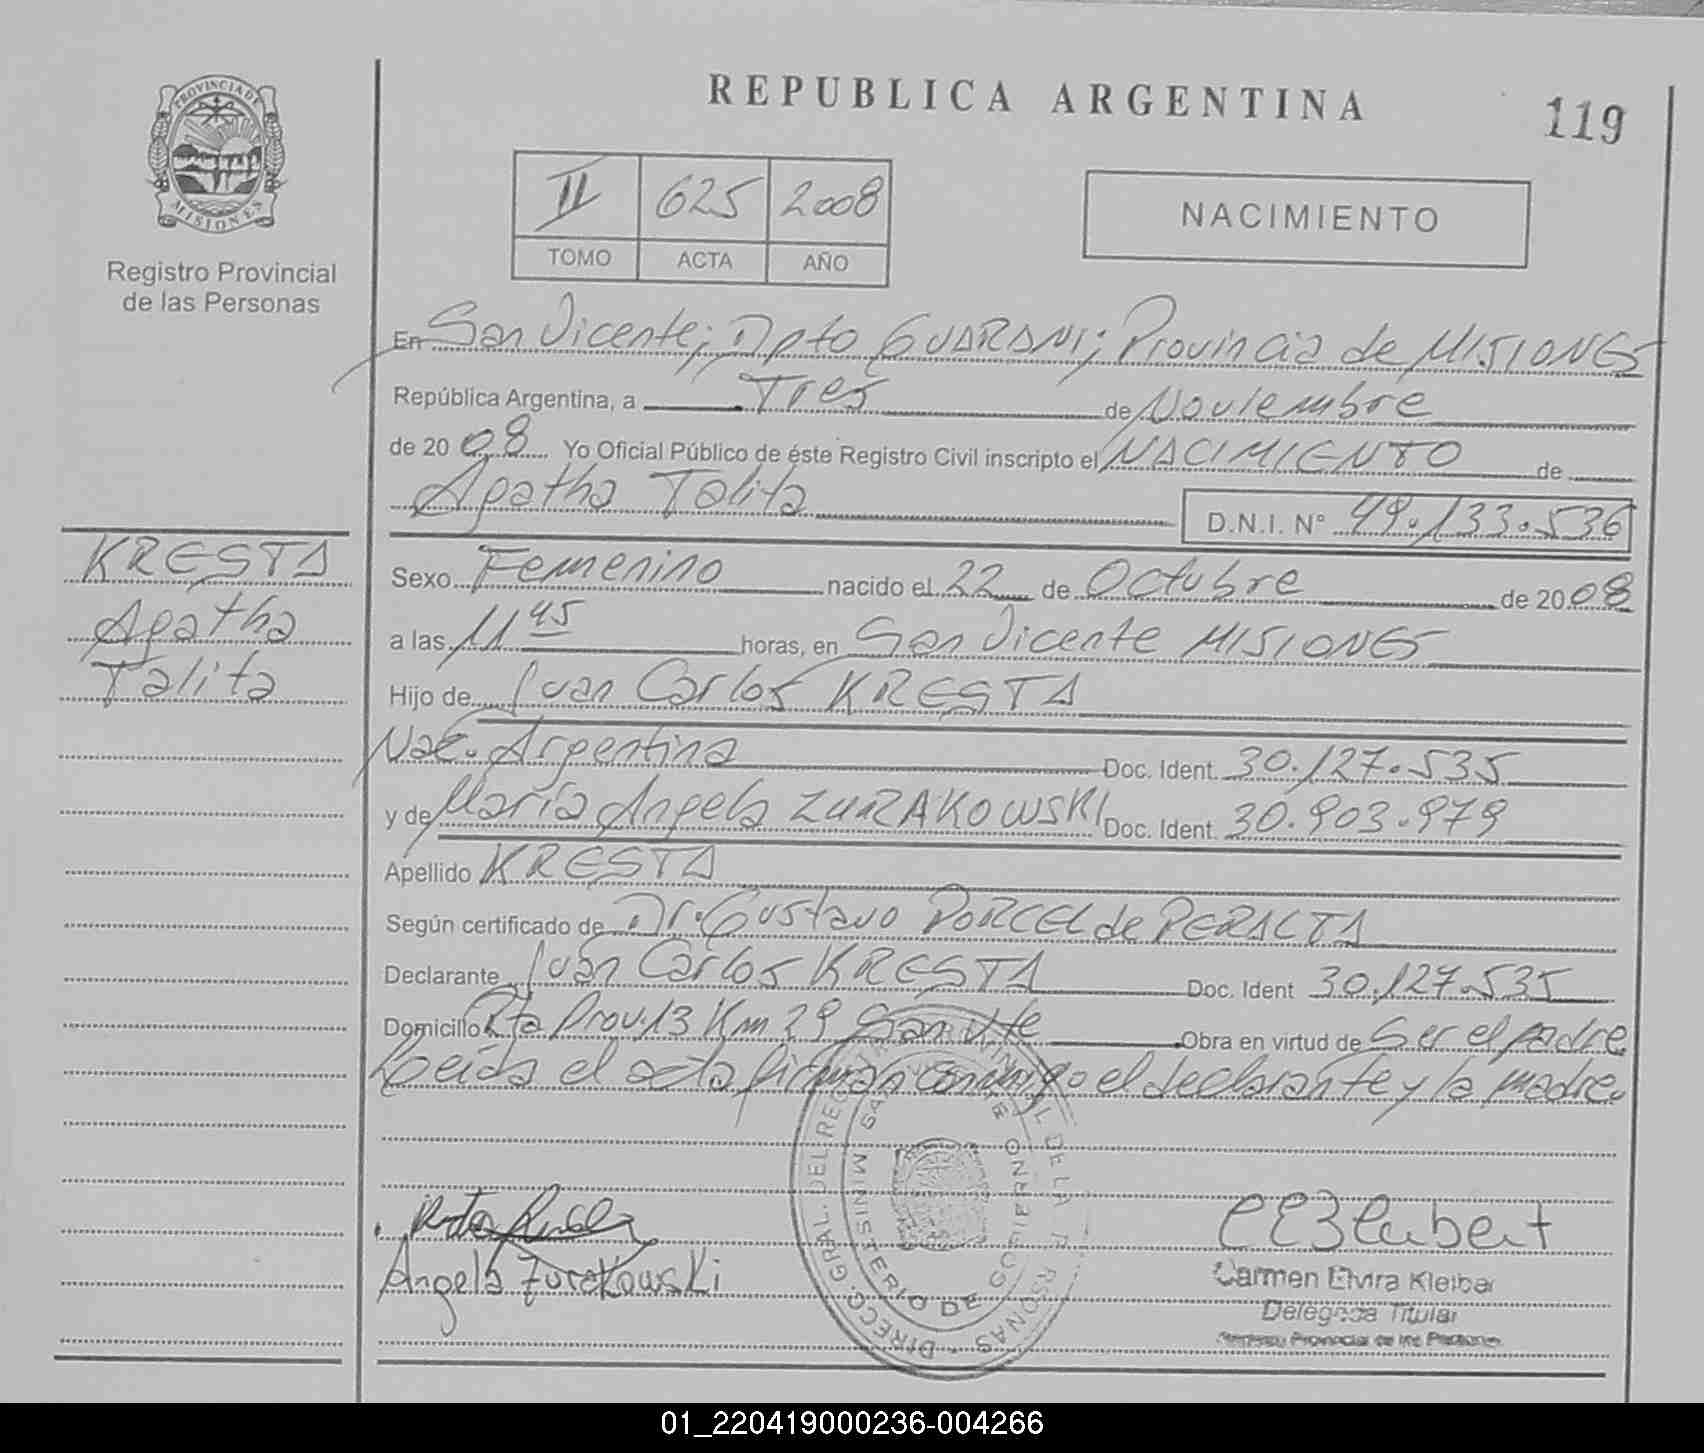 REPUBLICA ARGENTINA
119
PROVINCIA DE
MISIONES
Registro Provincial
de las Personas
II 625 2008
TOMO ACTA AÑO
NACIMIENTO
En San Vicente; Dpto GUARANI; Provincia de MISIONES
República Argentina, a Tres de Noviembre
de 20 08 Yo Oficial Público de éste Registro Civil inscripto el NACIMIENTO de
Agatha Talita D.N.I. N° 49.133.536
KRESTA
Agatha
Talita
Sexo Femenino nacido el 22 de Octubre de 20 08
a las 11 45 horas, en San Vicente MISIONES
Hijo de Juan Carlos KRESTA
Nac. Argentina Doc. Ident. 30.127.535
y de María Angela ZURAKOWSKI Doc. Ident. 30.903.979
Apellido KRESTA
Según certificado de Dr. Gustavo PORCEL de PERALTA
Declarante Juan Carlos KRESTA Doc. Ident 30.127.535
Domicilio Rta Prov. 13 Km 29 San Vte Obra en virtud de Ser el padre
Leída el acta firman conmigo el declarante y la madre.
Angela Zurakowski
Carmen Elvira Kleiber
Delegada Titular
Registro Provincial de las Personas
DIRECC. GRAL. DEL REG. PROVINCIAL DE LAS PERSONAS
MINISTERIO DE GOBIERNO
01_220419000236-004266